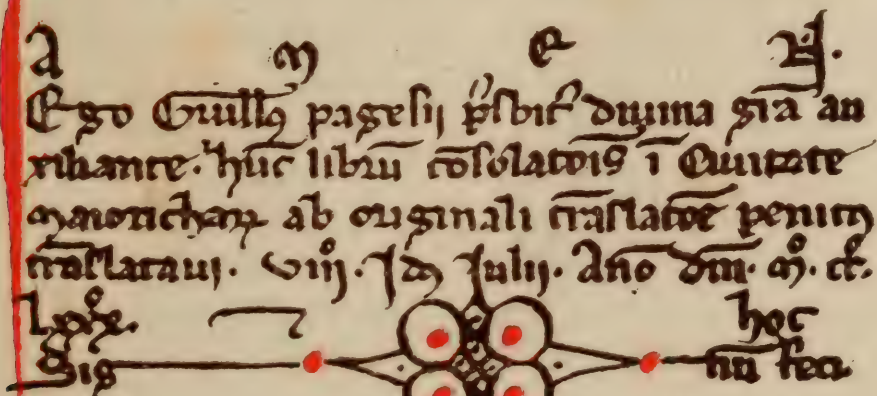 A M E N.
Ego Guillꝰ pagesij p̃sbit̃ diuina gr̃a au
xiliante. hũc librũ cõsolatõis ĩ Ciuitate
maioricharꝝ ab originali trãslatõe penitꝰ
trãslataui. viijº. Idꝰ Julij. Año dñi. Mº. ccc.
Lxxxº. hoc
Sig nũ feci